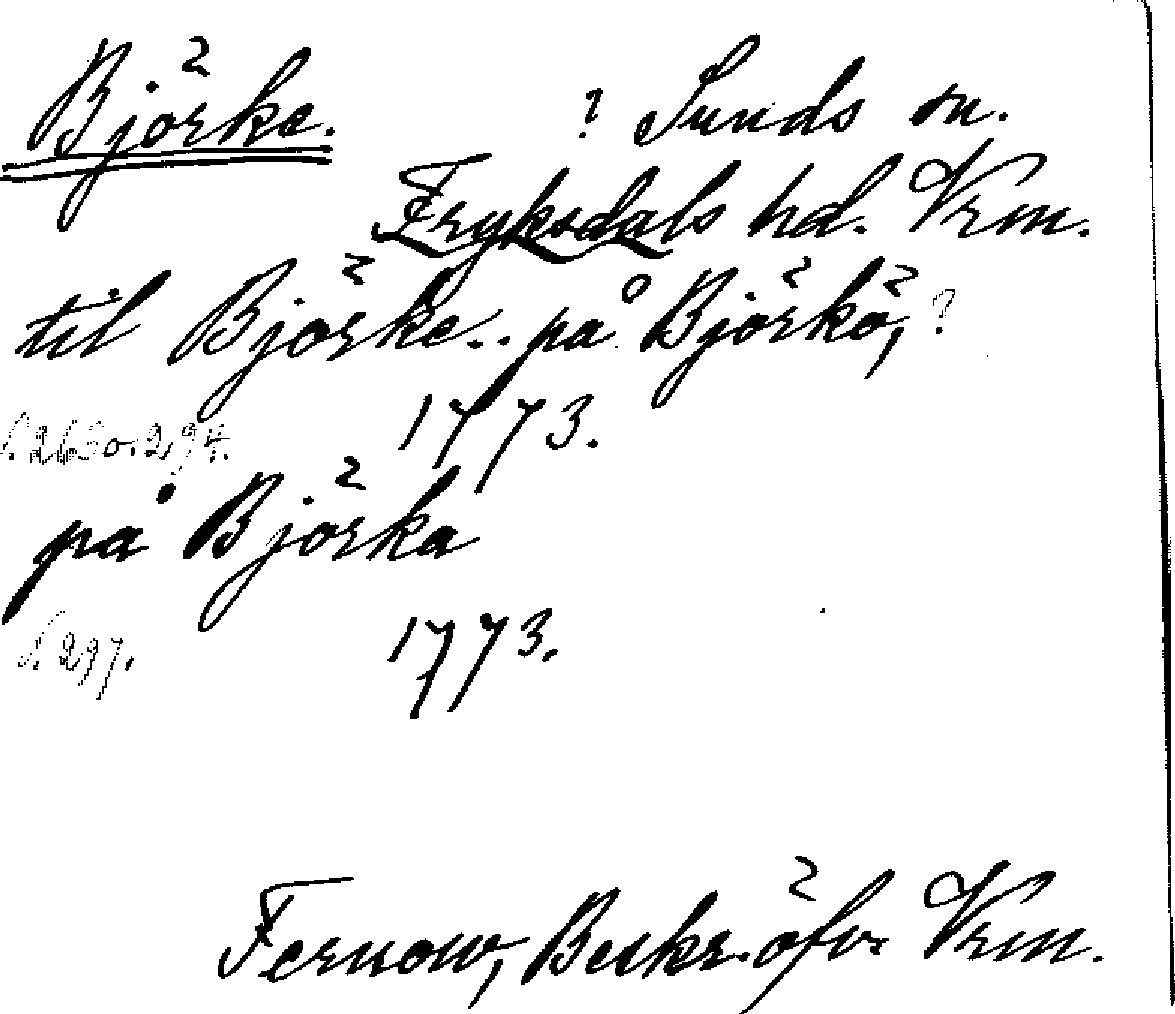 Björke. ? Sunds sn.
Fryksdals hd. Vrm.
til Björke.. på Björkö, ?
1773.
på Björka
s. 297. 1773.
Fernow, Beskr. öfv. Vrm.